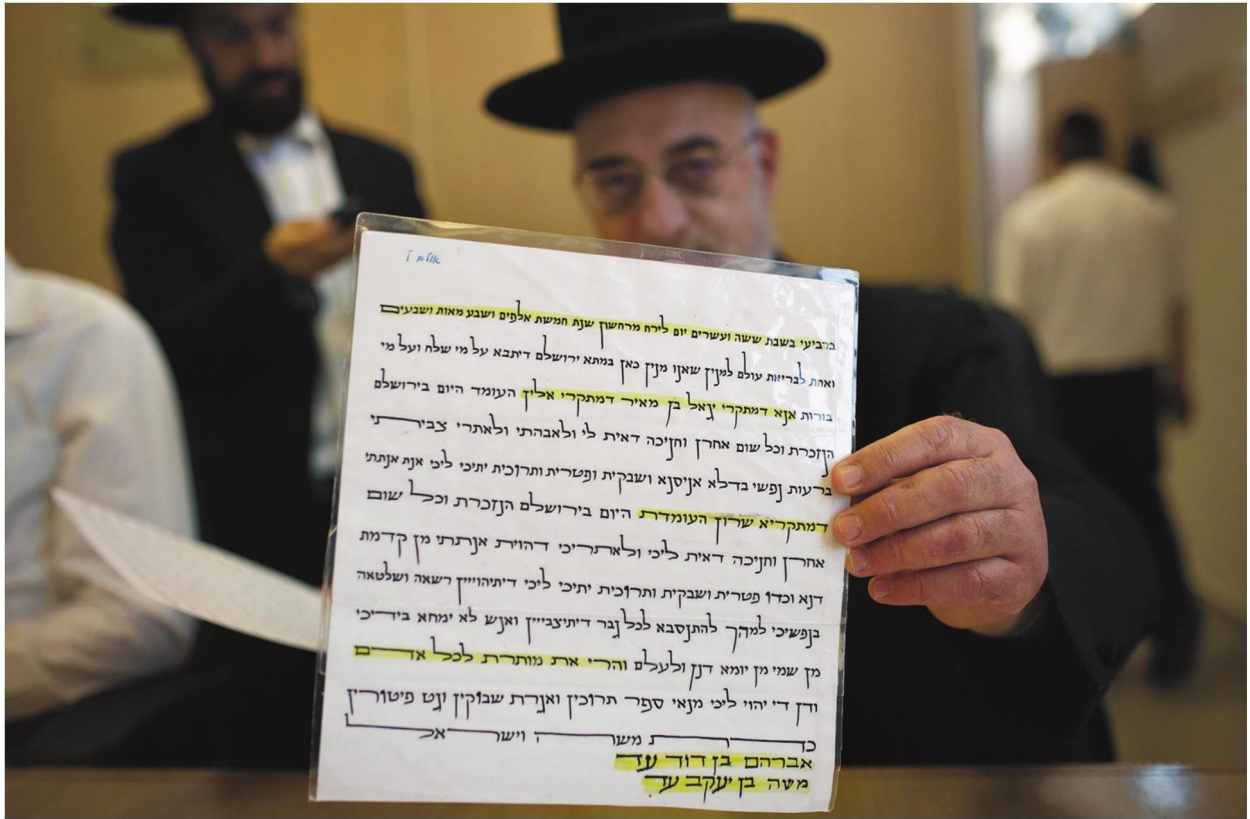 אולם 1
ברביעי בשבת ששה ועשרים יום לירח מרחשון שנת חמשת אלפים ושבע מאות ושבעים
ואחת לבריאת עולם למנין שאנו מנין כאן במתא ירושלם דיתבא על מי שלח ועל מי
בורות אנא דמתקרי יגאל בן מאיר דמתקרי אליך העומד היום בירושלם
הנזכרת וכל שום אחרן וחניכה דאית לי ולאבהתי ולאתרי צביתי
ברעות נפשי בדלא אניסנא ושבקית ופטרית ותרוכית יתיכי ליכי אנת אנתתי
דמתקריא שרון העומדת היום בירושלם הנזכרת וכל שום
אחרן וחניכה דאית ליכי ולאתריכי דהוית אנתתי מן קדמת
דנא וכדו פטרית ושבקית ותרוכית יתיכי ליכי דיתיהוייין רשאה ושלטאה
בנפשיכי למהך להתנסבא לכל גבר דיתיצבייין ואנש לא ימחא בידיכי
מן שמי מן יומא דנן ולעלם והרי את מותרת לכל אדם
ודן די יהוי ליכי מנאי ספר תרוכין ואגרת שבוקין וגט פיטורין
כדת משה וישראל
אברהם בן דוד עד
משה בן יעקב עד